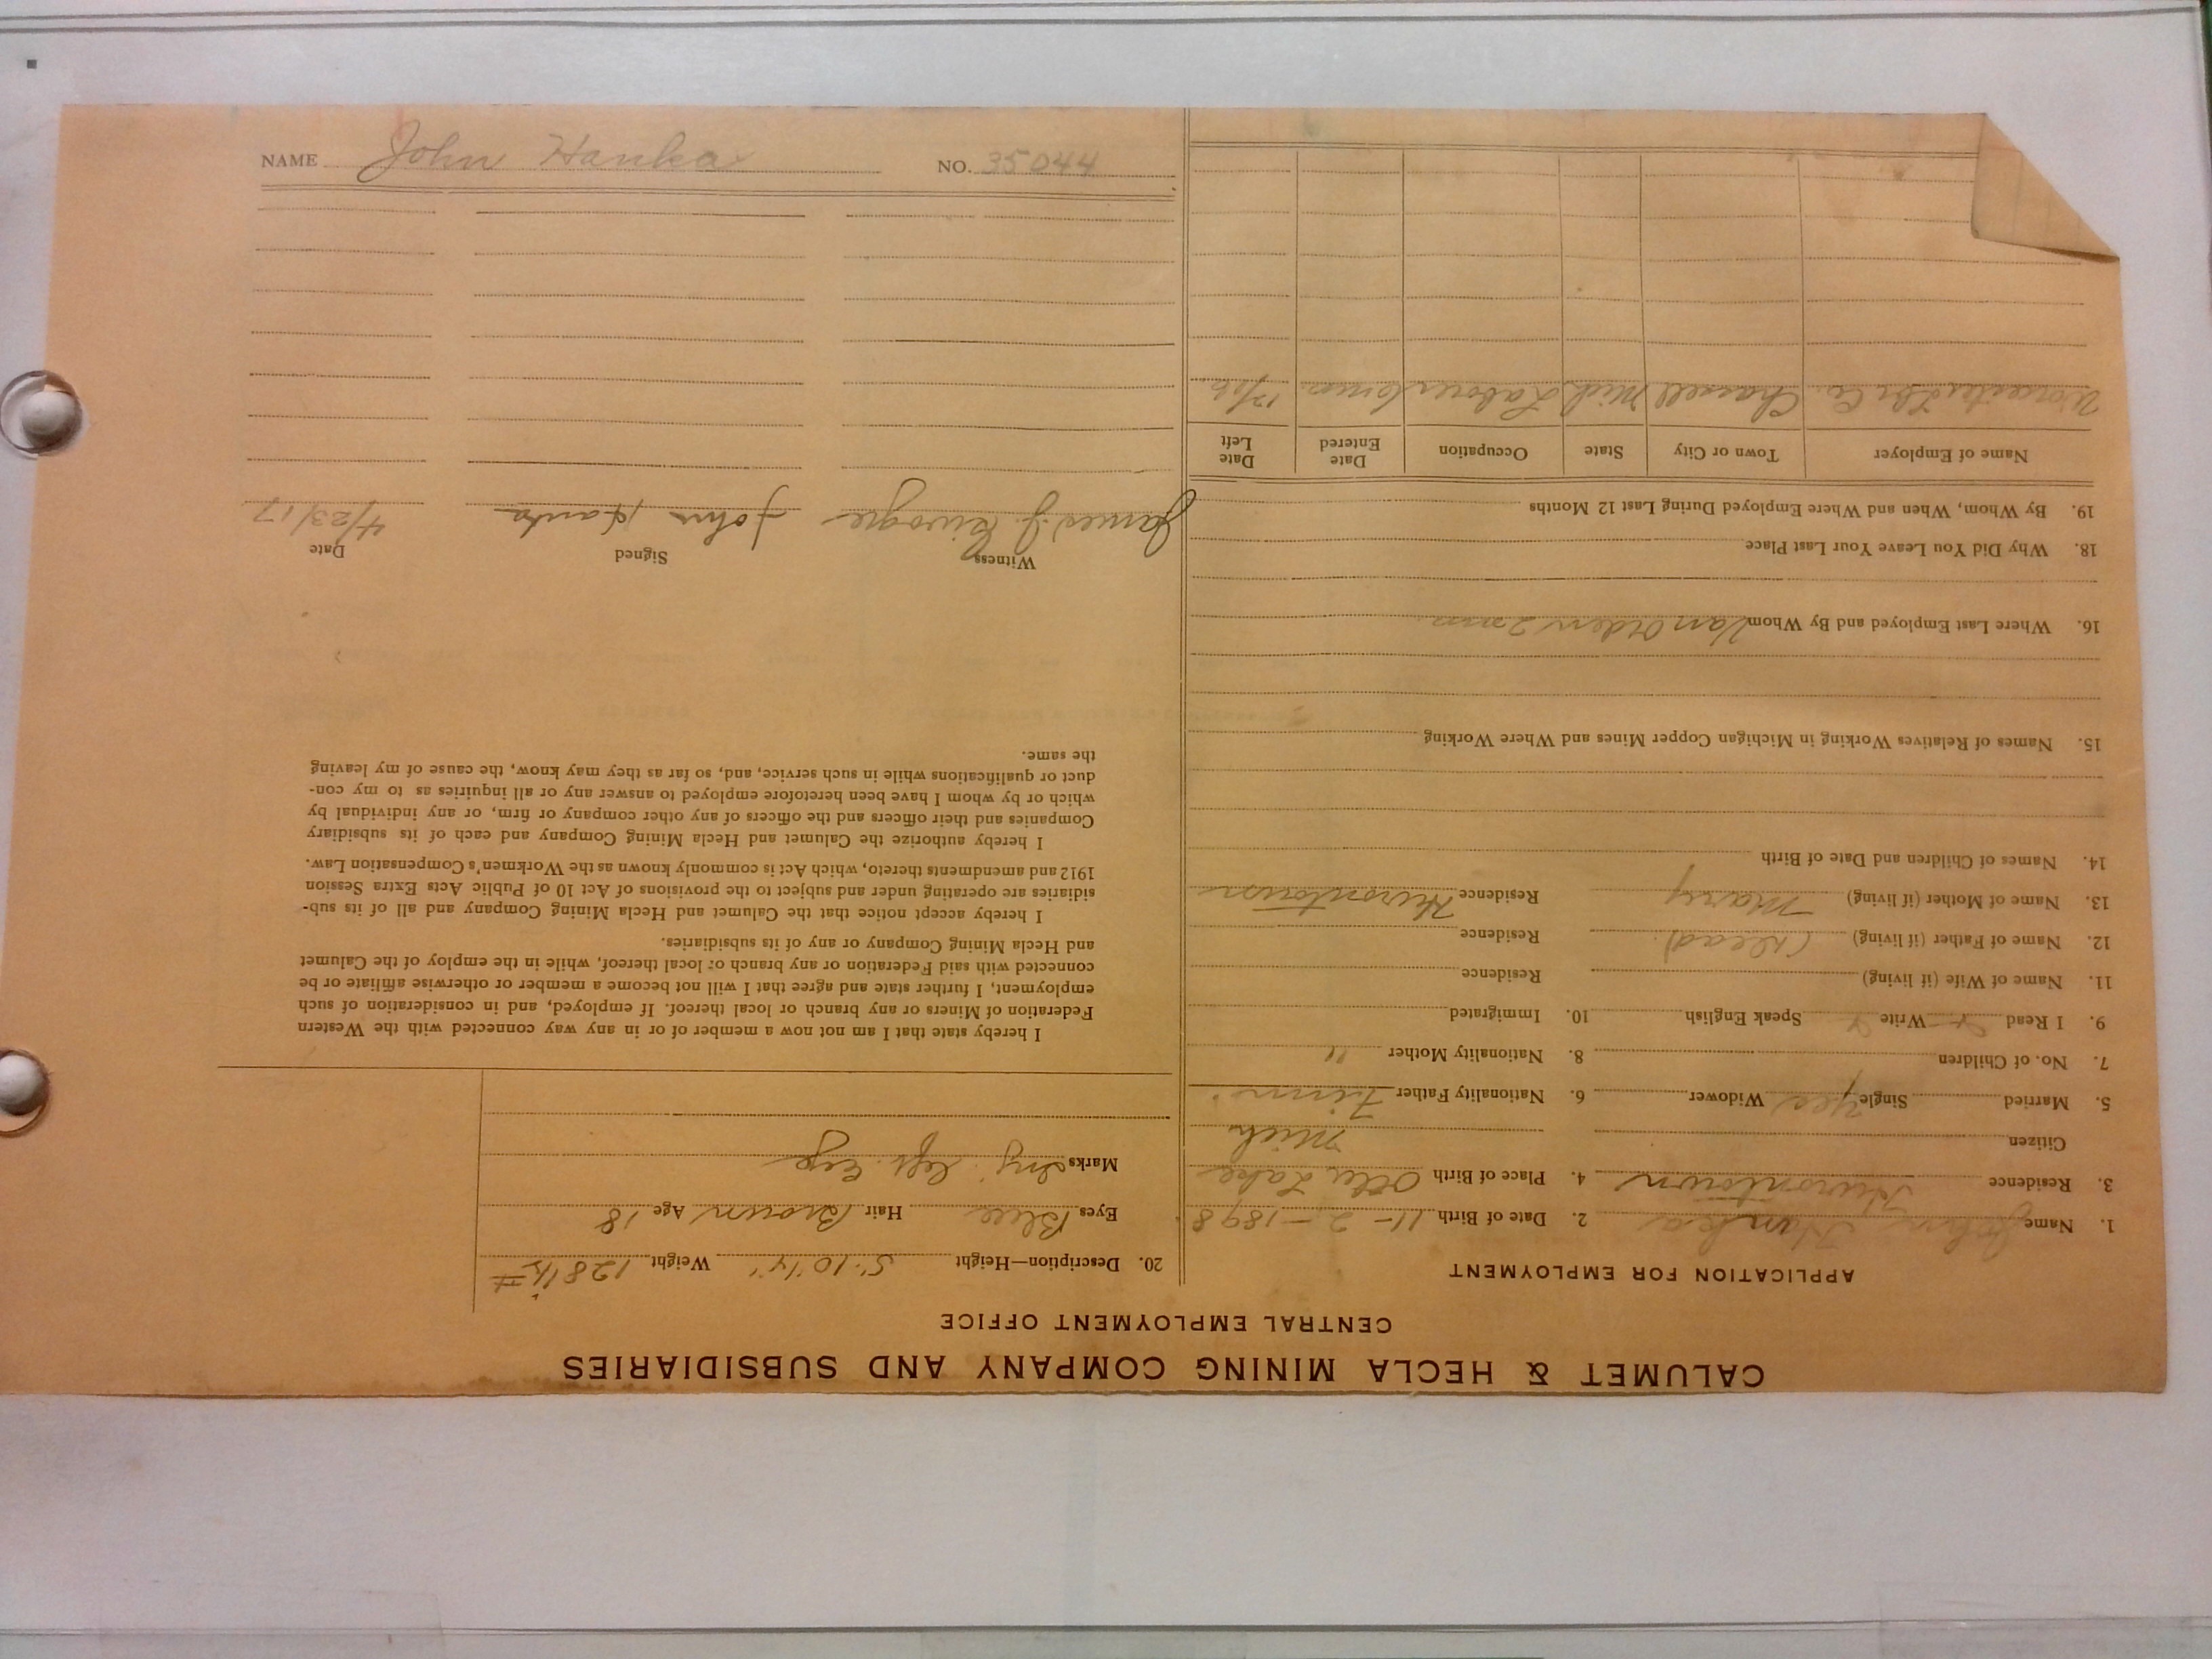 CALUMET & HECLA MINING COMPANY AND SUBSIDIARIES
CENTRAL EMPLOYMENT OFFICE
APPLICATION FOR EMPLOYMENT
1. Name John Hanka 2. Date of Birth 11-2-1898
3. Residence Hurontown 4. Place of Birth Otter Lake
Citizen Mich
5. Married Single Yes Widower 6. Nationality Father Finn
7. No. of Children 8. Nationality Mother "
9. I Read Write Speak English 10. Immigrated
11. Name of Wife (if living) Residence
12. Name of Father (if living) (Dead) Residence
13. Name of Mother (if living) Mary Residence Hurontown
14. Names of Children and Date of Birth
15. Names of Relatives Working in Michigan Copper Mines and Where Working
16. Where Last Employed and By Whom Van Orden 2
18. Why Did You Leave Your Last Place
19. By Whom, When and Where Employed During Last 12 Months
Name of Employer Town or City State Occupation Date Entered Date Left
Worcester Lbr Co. Chassell Mich Laborer
20. Description—Height 5'-10 1/4" Weight 128 1/2 #
Eyes Blue Hair Brown Age 18
Marks Inj. left Eye
I hereby state that I am not now a member of or in any way connected with the Western
Federation of Miners or any branch or local thereof. If employed, and in consideration of such
employment, I further state and agree that I will not become a member or otherwise affiliate or be
connected with said Federation or any branch or local thereof, while in the employ of the Calumet
and Hecla Mining Company or any of its subsidiaries.
I hereby accept notice that the Calumet and Hecla Mining Company and all of its sub-
sidiaries are operating under and subject to the provisions of Act 10 of Public Acts Extra Session
1912 and amendments thereto, which Act is commonly known as the Workmen's Compensation Law.
I hereby authorize the Calumet and Hecla Mining Company and each of its subsidiary
Companies and their officers and the officers of any other company or firm, or any individual by
which or by whom I have been heretofore employed to answer any or all inquiries as to my con-
duct or qualifications while in such service, and, so far as they may know, the cause of my leaving
the same.
Witness Signed Date
James J. John Hanka 4/23/17
NAME John Hanka NO. 35044